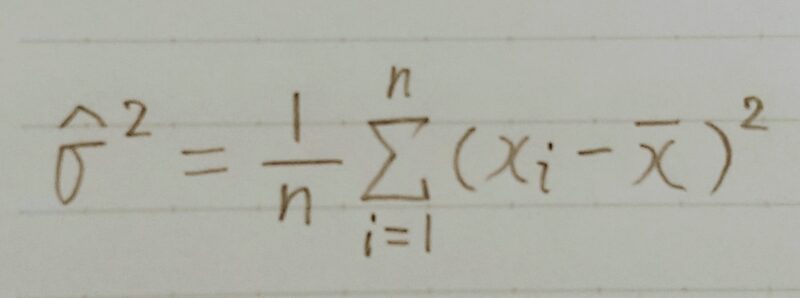 σ̂² = 1/n ∑_{i=1}^{n} (xᵢ − x̄)²